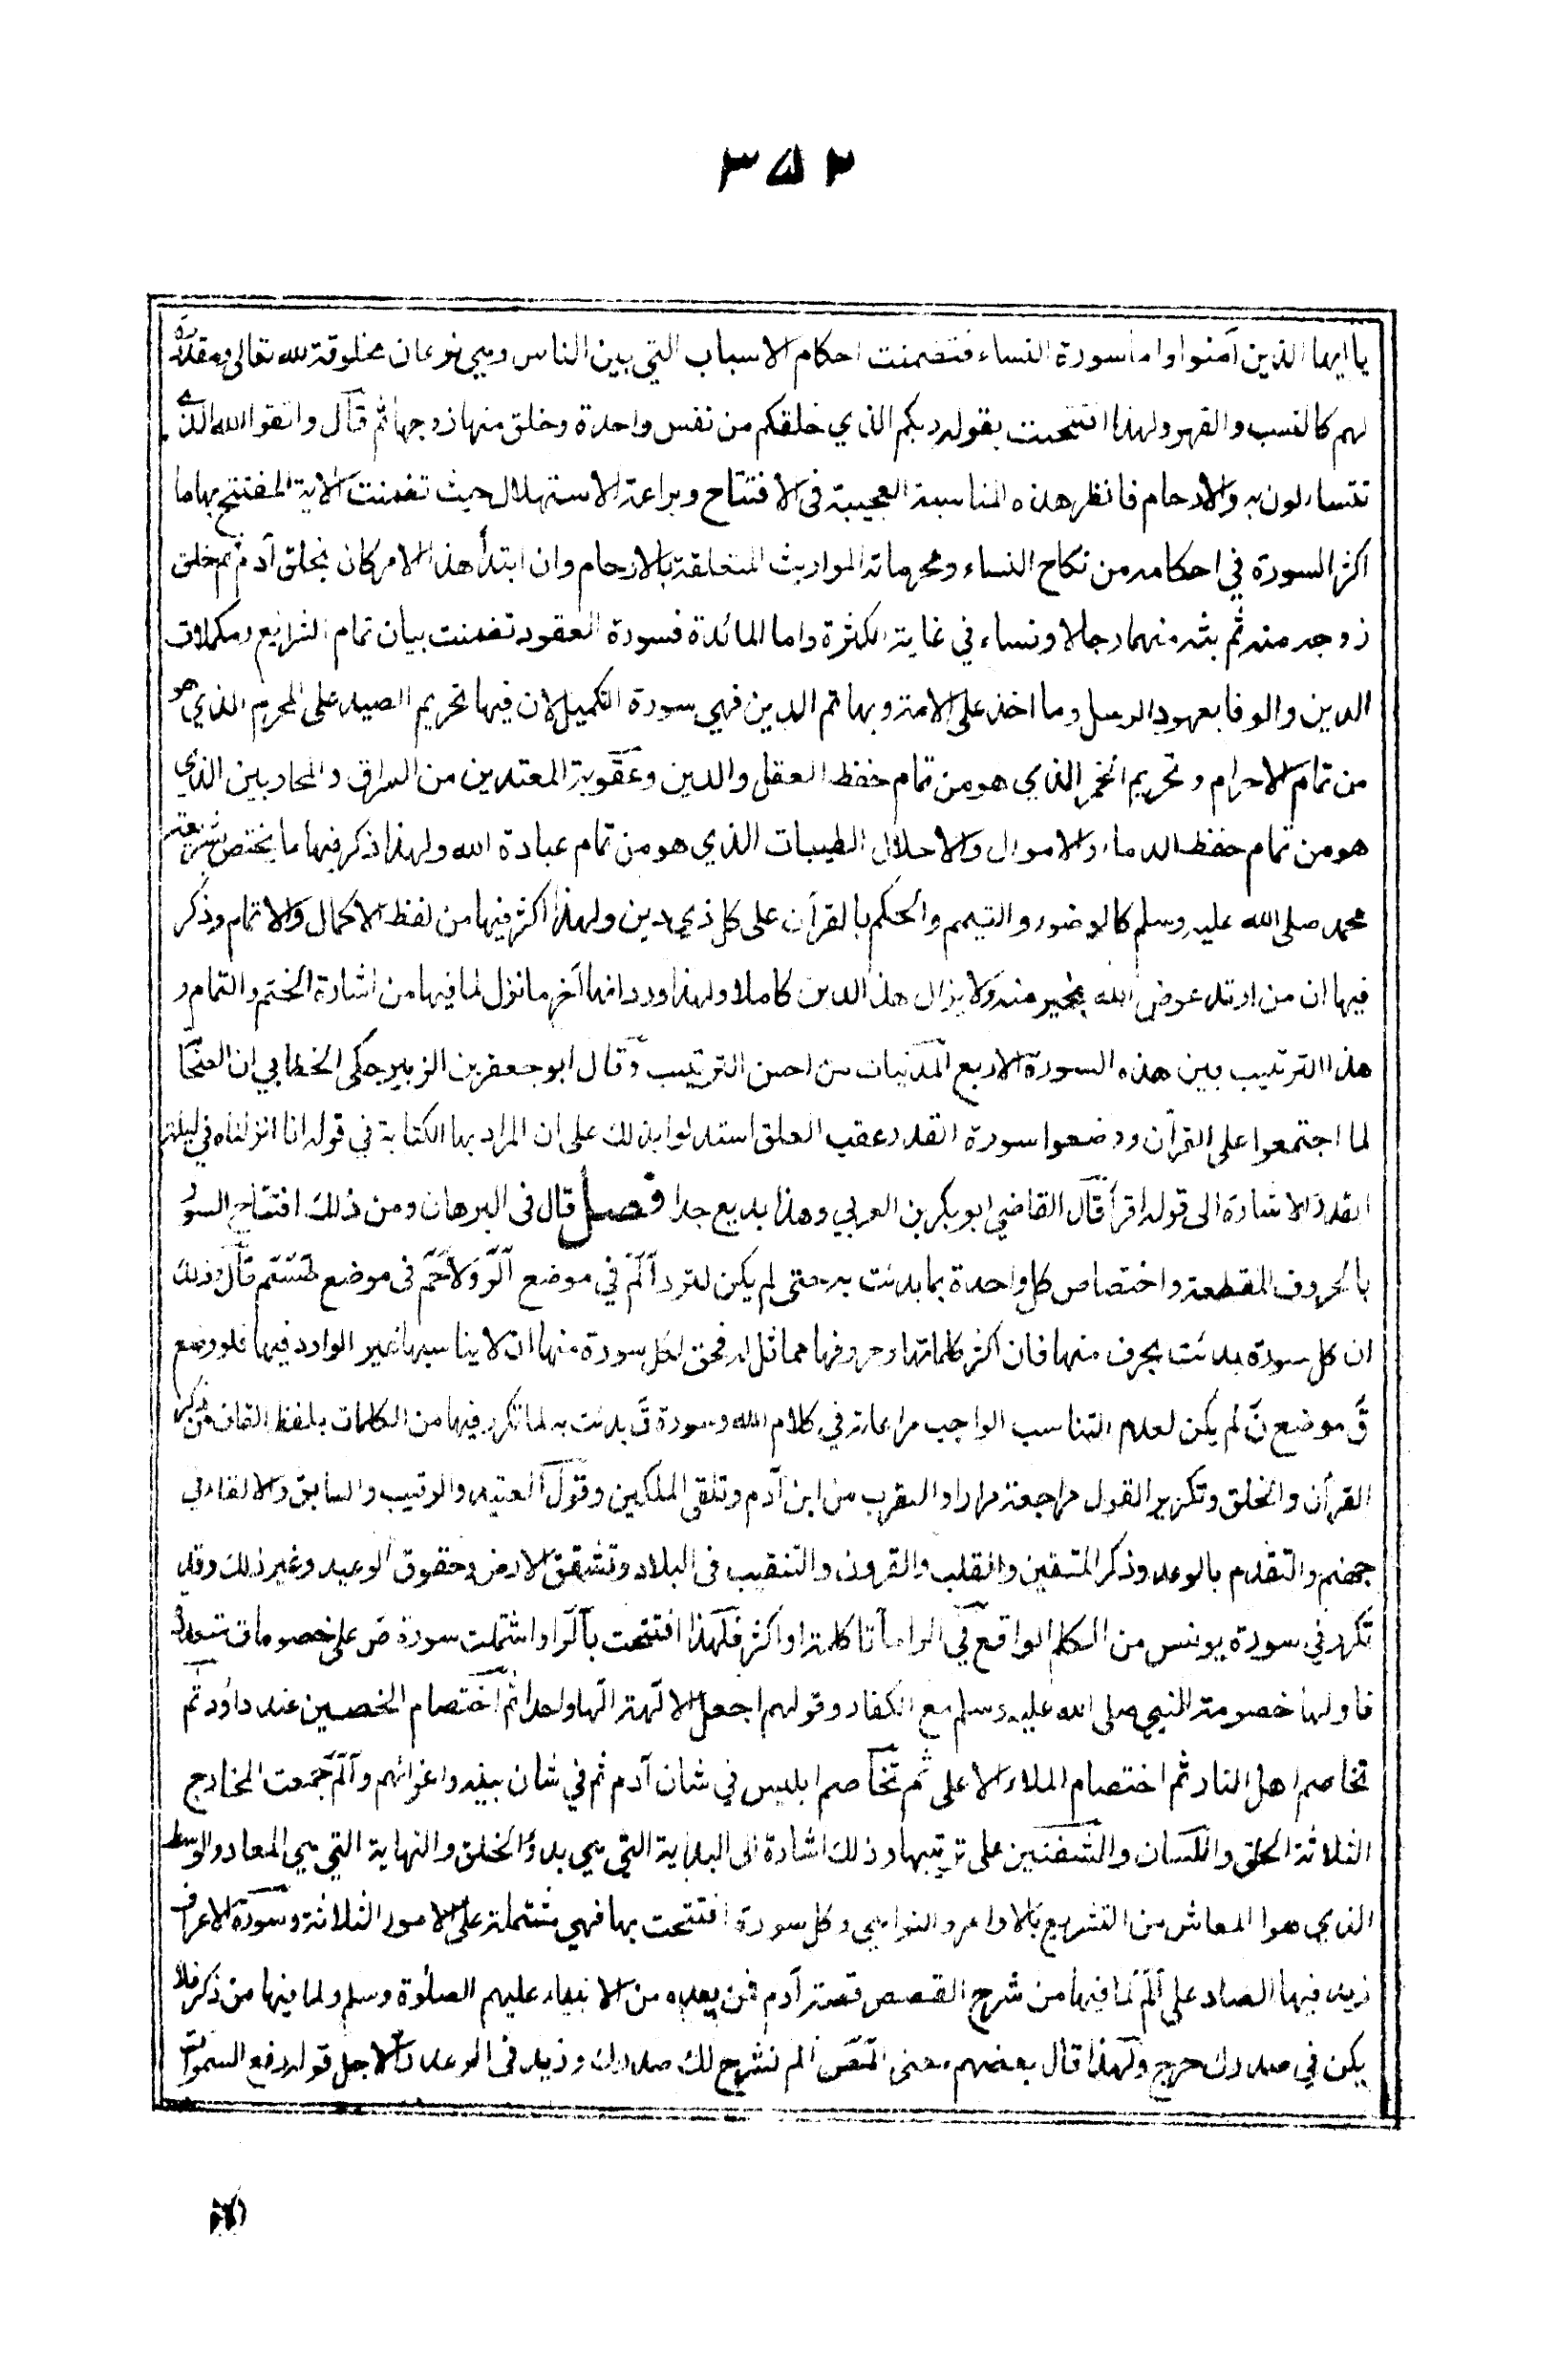 ۳۵۲
يا ايها الذين آمنوا واما سورة النساء فتضمنت احكام الاسباب التي بين الناس وهي نوعان مخلوقة لله تعالى ومقدرة
لهم كالنسب والصهر ولهذا افتتحت بقوله ربكم الذي خلقكم من نفس واحدة وخلق منها زوجها ثم قال واتقوا الله الذي
تتساءلون به والارحام فانظر هذه المناسبة العجيبة فى الافتتاح وبراعة الاستهلال حيث تضمنت الاية المفتتح بها ما
اكثر السورة في احكامه من نكاح النساء ومحرماته المواريث المتعلقة بالارحام وان ابتدأ هذا الامر كان بخلق آدم ثم خلق
زوجه منه ثم بث منهما رجالا ونساء في غاية الكثرة واما المائدة فسورة العقود تضمنت بيان تمام الشرايع ومكملات
الدين والوفا بعهود الرسل وما اخذ على الامة وبها تم الدين فهي سورة التكميل لان فيها تحريم الصيد على المحرم الذي هو
من تمام الاحرام وتحريم الخمر الذي هو من تمام حفظ العقل والدين وعقوبة المعتدين من السراق والمحاربين الذي
هو من تمام حفظ الدماء والاموال والاحلال الطيبات الذي هو من تمام عبادة الله ولهذا ذكر فيها ما يختص بشريعة
محمد صلى الله عليه وسلم كالوضوء والتيمم والحكم بالقرآن على كل ذي دين ولهذا اكثر فيها من لفظ الاكمال والاتمام وذكر
فيها ان من ارتد عوض الله بخير منه ولا يزال هذا الدين كاملا ولهذا ورد انها آخر ما نزل لما فيها من اشارة الختم والتمام و
هذا الترتيب بين هذه السورة الاربع المدنيات من احسن الترتيب وقال ابو جعفر بن الزبير حكى الخطابي ان الصحابة
لما اجتمعوا على القرآن ووضعوا سورة القدر عقب العلق استدلوا بذلك على ان المراد بها الكتابة في قوله انا انزلناه في ليلة
القدر الاشارة الى قوله اقرأ قال القاضي ابو بكر بن العربي وهذا بديع جدا فصل قال فى البرهان ومن ذلك افتتاح السور
بالحروف المقطعة واختصاص كل واحدة بما بدئت به حتى لم يكن لترد الم في موضع الر ولا حم فى موضع طسم قال وذلك
ان كل سورة بدئت بحرف منها فان اكثر كلماتها وحروفها مماثل له فحق لكل سورة منها ان لا يناسبها غير الوارد فيها فلو وضع
ق موضع ن لم يكن لعدم التناسب الواجب مراعاته في كلام الله وسورة ق بدئت به لما تكرر فيها من الكلمات بلفظ القاف من ذكر
القرآن والخلق وتكرير القول مراجعة مرارا والقرب من ابن آدم وتلقى الملكين وقول العتيد والرقيب والسابق والالقاء في
جهنم والتقدم بالوعد وذكر المتقين والقلب والقرون والتنقيب فى البلاد وتشقق الارض وحقوق الوعيد وغير ذلك وقد
تكرر في سورة يونس من الكلم الواقع في الراء مأتا كلمة او اكثر فلهذا افتتحت بالر واشتملت سورة ص على خصومات متعددة
فاولها خصومة النبي صلى الله عليه وسلم مع الكفار وقولهم اجعل الالهة الها واحدا ثم اختصام الخصمين عند داود ثم
تخاصم اهل النار ثم اختصام الملاء الاعلى ثم تخاصم ابليس في شان آدم ثم في شان بنيه واغوائهم والم جمعت المخارج
الثلاثة الحلق واللسان والشفتين على ترتيبها وذلك اشارة الى البداية التي هي بدؤ الخلق والنهاية التي هي المعاد والوسط
الذي هو المعاش من التشريع بالاوامر والنواهي وكل سورة افتتحت بها فهي مشتملة على الامور الثلاثة وسورة الاعراف
زيد فيها الصاد على الم لما فيها من شرح القصص قصة آدم فمن بعده من الانبياء عليهم الصلوة وسلم ولما فيها من ذكر فلا
يكن في صدرك حرج ولهذا قال بعضهم معنى المص الم نشرح لك صدرك وزيد فى الرعد را لاجل قوله رفع السموات